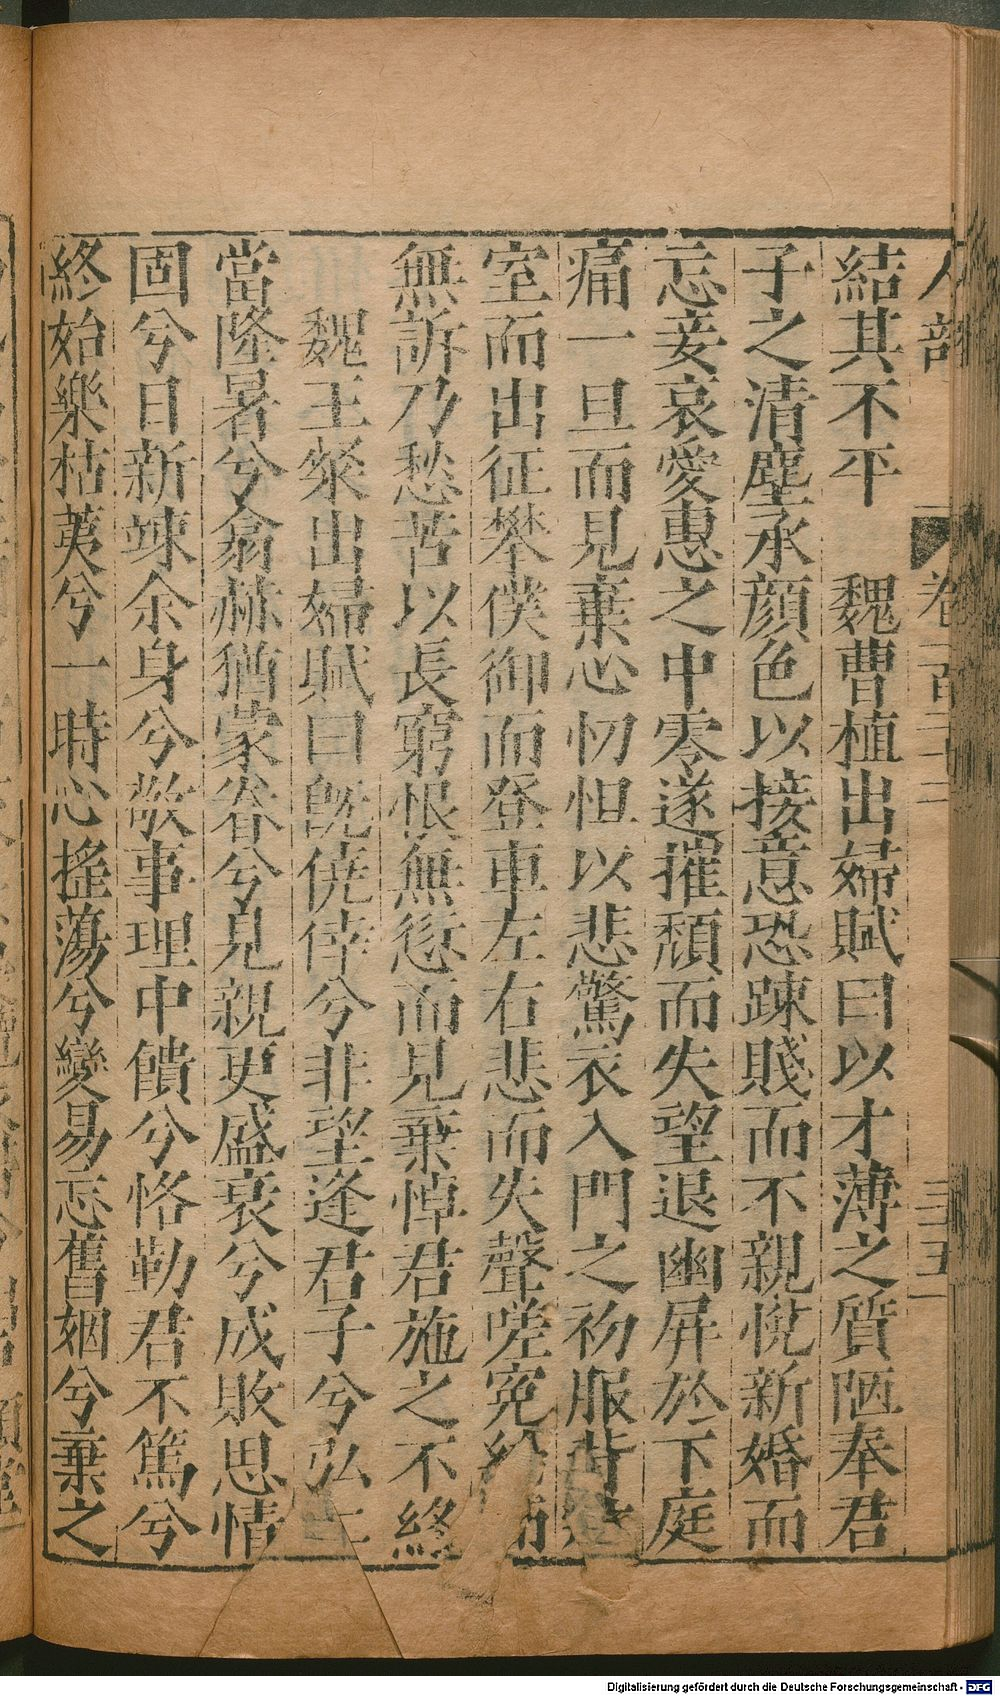 結其不平　魏曹植出婦賦曰以才薄之質陋奉君
子之清塵承顔色以接意恐踈賤而不親悅新婚而
忘妾哀愛惠之中零遂摧頽而失望退幽屏於下庭
痛一旦而見棄心忉怛以悲驚衣入門之初服背
室而出征攀僕御而登車左右悲而失聲嗟寃
無訴乃愁苦以長窮恨無愆而見棄悼君施之不終
魏王粲出婦賦曰旣僥倖兮非望逢君子兮弘
當隆暑兮翕赫猶蒙眷兮見親更盛衰兮成敗思情
固兮日新竦余身兮敬事理中饋兮恪勒君不篤兮
終始樂枯荑兮一時心搖蕩兮變易忘舊姻兮棄之
人部
卷三十
三五
Digitalisierung gefördert durch die Deutsche Forschungsgemeinschaft - DFG